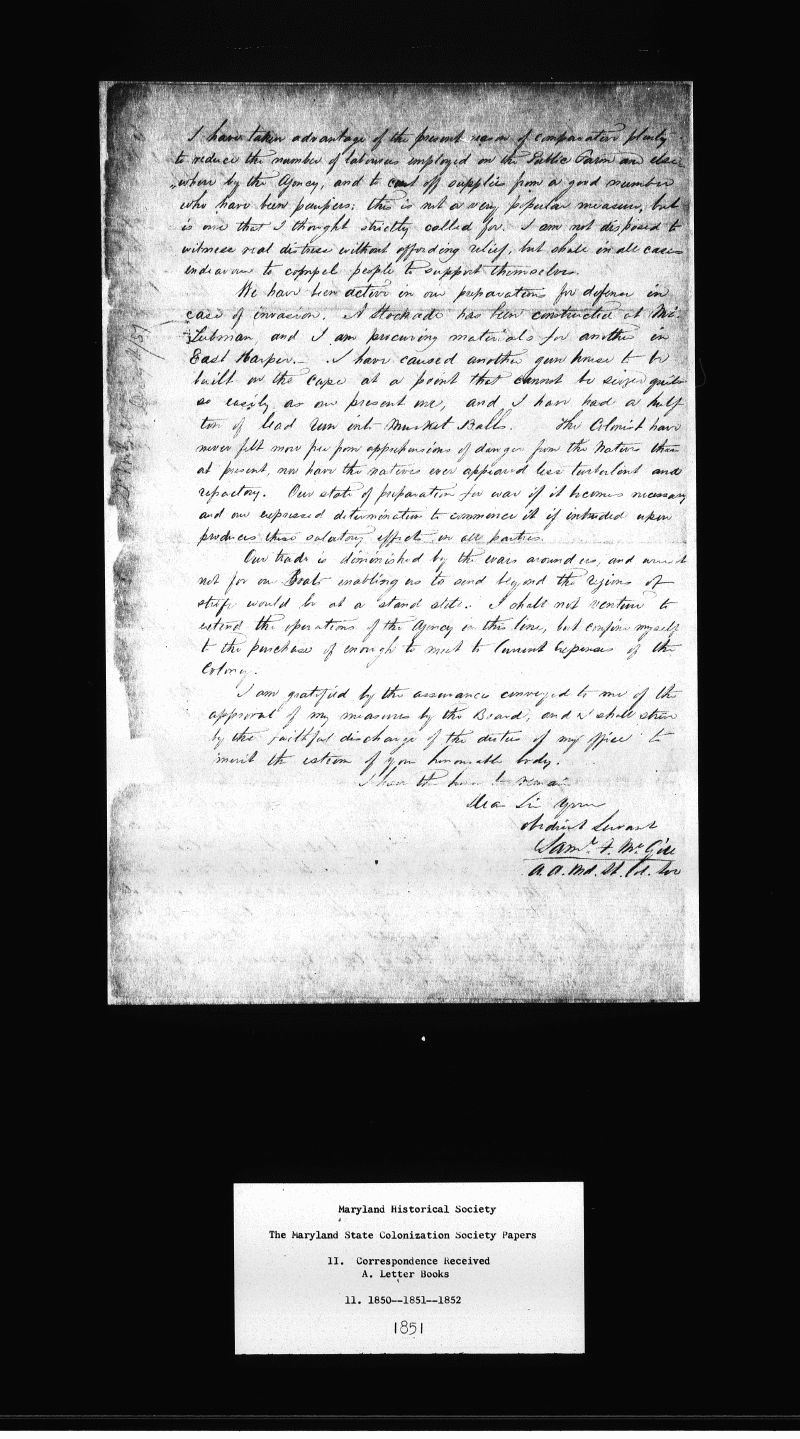 I have taken advantage of the present season of comparative plenty
to reduce the number of labourers employed on the Public Farm and else
where by the Agency, and to cut off supplies from a good number
who have been paupers; this is not a very popular measure, but
is one that I thought strictly called for. I am not disposed to
witness real distress without affording relief, but shall in all cases
endeavour to compel people to support themselves.
We have been active in our preparations for defense in
case of invasion. A Stockade has been constructed at Mt.
Tubman, and I am procuring materials for another in
East Harper. — I have caused another gun house to be
built on the Cape at a point that cannot be seized quite
so easily as our present one, and I have had a half
ton of lead run into Musket Balls. The Colonist have
never felt more free from apprehensions of danger from the Natives than
at present, nor have the natives ever appeared less turbulent and
refractory. Our state of preparation for war if it becomes necessary
and our expressed determination to commence it if intruded upon
produces these salutary effects on all parties.
Our trade is diminished by the wars around us, and were it
not for our Boats enabling us to send beyond the regions of
strife would be at a stand still. I shall not venture to
extend the operations of the Agency in this line, but confine myself
to the purchase of enough to meet the Current Expenses of the
Colony.
I am gratified by the assurances conveyed to me of the
approval of my measures by the Board, and I shall strive
by the faithful discharge of the duties of my office to
merit the esteem of your honourable body.
I have the honor to remain
Dear Sir Your
obedient Servant
Saml. F. McGill
A. A. Md. St. Col. Soc
Maryland Historical Society
The Maryland State Colonization Society Papers
11. Correspondence Received
A. Letter Books
11. 1850--1851--1852
1851